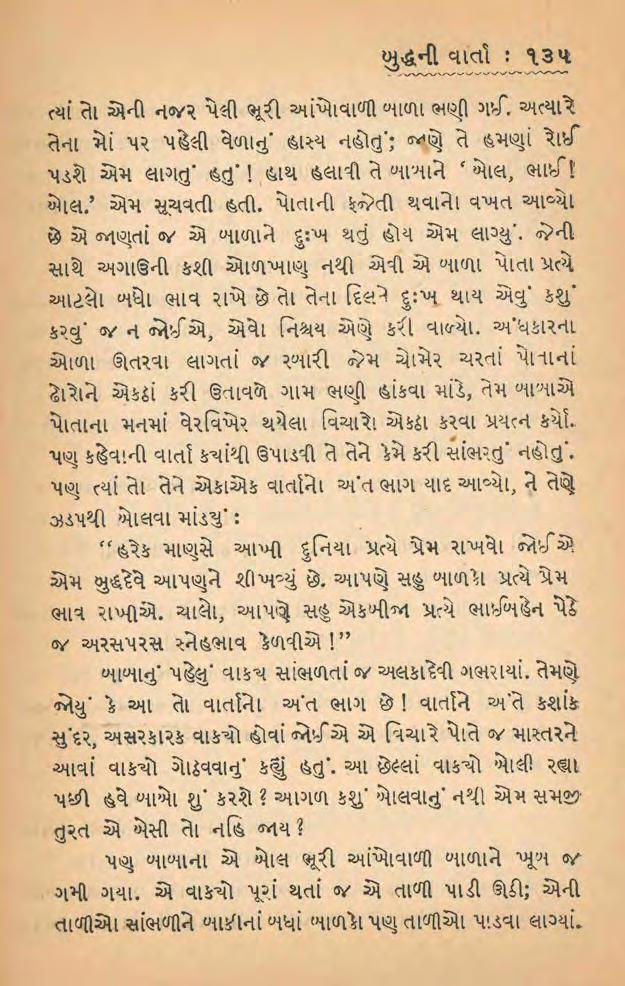 બુદ્ધની વાર્તા : ૧૩૫
ત્યાં તો એની નજર પેલી ભૂરી આંખોવાળી બાળા ભણી ગઈ. અત્યારે
તેના મોં પર પહેલી વેળાનું હાસ્ય નહોતું; જાણે તે હમણાં રોઈ
પડશે એમ લાગતું હતું ! હાથ હલાવી તે બાબાને ‘ બોલ, ભાઈ !
બોલ.’ એમ સૂચવતી હતી. પોતાની ફજેતી થવાનો વખત આવ્યો
છે એ જાણતાં જ એ બાળાને દુઃખ થતું હોય એમ લાગ્યું. જેની
સાથે અગાઉની કશી ઓળખાણ નથી એવી એ બાળા પોતા પ્રત્યે
આટલો બધો ભાવ રાખે છે તો તેના દિલને દુઃખ થાય એવું કશું
કરવું જ ન જોઈએ, એવો નિશ્ચય એણે કરી વાળ્યો. અંધકારના
ઓળા ઊતરવા લાગતાં જ રબારી જેમ ચોમેર ચરતાં પોતાનાં
ઢોરોને એકઠાં કરી ઉતાવળે ગામ ભણી હાંકવા માંડે, તેમ બાબાએ
પોતાના મનમાં વેરવિખેર થયેલા વિચારો એકઠા કરવા પ્રયત્ન કર્યો.
પણ કહેવાની વાર્તા કયાંથી ઉપાડવી તે તેને કેમે કરી સાંભરતું નહોતું.
પણ ત્યાં તો તેને એકાએક વાર્તાનો અંત ભાગ યાદ આવ્યો, ને તેણે
ઝડપથી બોલવા માંડ્યું :
“હરેક માણુસે આખી દુનિયા પ્રત્યે પ્રેમ રાખવો જોઈએ
એમ બુદ્ધદેવે આપણને શીખવ્યું છે. આપણે સહુ બાળકો પ્રત્યે પ્રેમ
ભાવ રાખીએ. ચાલો, આપણે સહુ એકબીજા પ્રત્યે ભાઈબહેન પેઠે
જ અરસપરસ સ્નેહભાવ કેળવીએ !”
બાબાનું પહેલું વાકય સાંભળતાં જ અલકાદેવી ગભરાયાં. તેમણે
જોયું કે આ તો વાર્તાનો અંત ભાગ છે ! વાર્તાને અંતે કશાંક
સુંદર, અસરકારક વાકયો હોવાં જોઈએ એ વિચારે પોતે જ માસ્તરને
આવાં વાકયો ગોઠવવાનું કહ્યું હતું. આ છેલ્લાં વાકયો બોલી રહ્યા
પછી હવે બાબો શું કરશે ? આગળ કશું બોલવાનું નથી એમ સમજી
તુરત એ બેસી તો નહિ જાય ?
પણ બાબાના એ બોલ ભૂરી આંખોવાળી બાળાને ખૂબ જ
ગમી ગયા. એ વાકયો પૂરાં થતાં જ એ તાળી પાડી ઊઠી; એની
તાળીઓ સાંભળીને બાકીનાં બધાં બાળકો પણ તાળીઓ પાડવા લાગ્યાં.